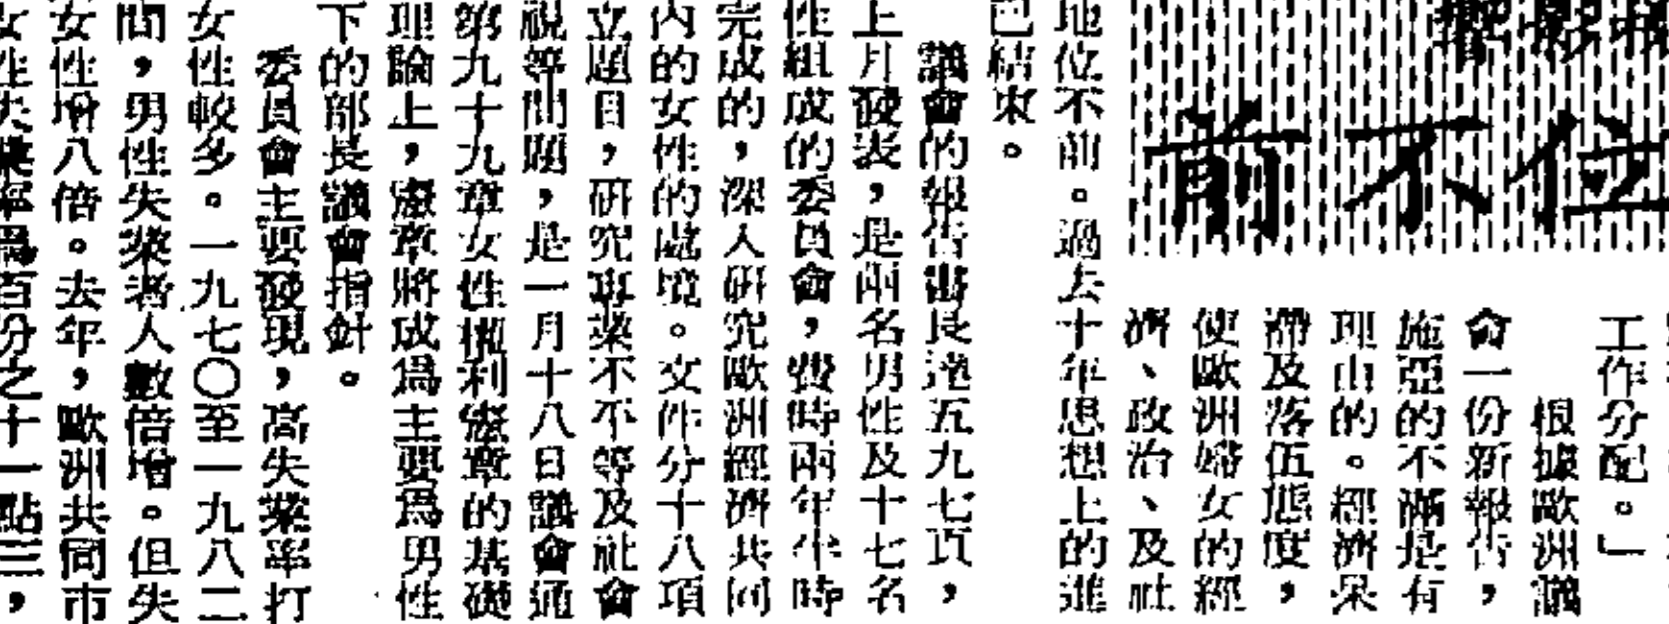 位不前
工作分配。」
根據歐洲議
會一份新報告，
施亞的不滿是有
理由的。經濟呆
滯及落伍態度，
使歐洲婦女的經
濟、政治、及社
地位不前。過去十年思想上的進
已結束。
議會的報告書長達五九七頁，
上月發表，是兩名男性及十七名
性組成的委員會，費時兩年半時
完成的，深入研究歐洲經濟共同
內的女性的處境。文件分十八項
立題目，研究事業不不等及社會
視等問題，是一月十八日議會通
第九十九章女性權利憲章的基礎
理論上，憲章將成爲主要爲男性
下的部長議會指針。
委員會主要發現，高失業率打
女性較多。一九七〇至一九八二
間，男性失業者人數倍增。但失
女性增八倍。去年，歐洲共同市
女性失業率爲百分之十一點三，